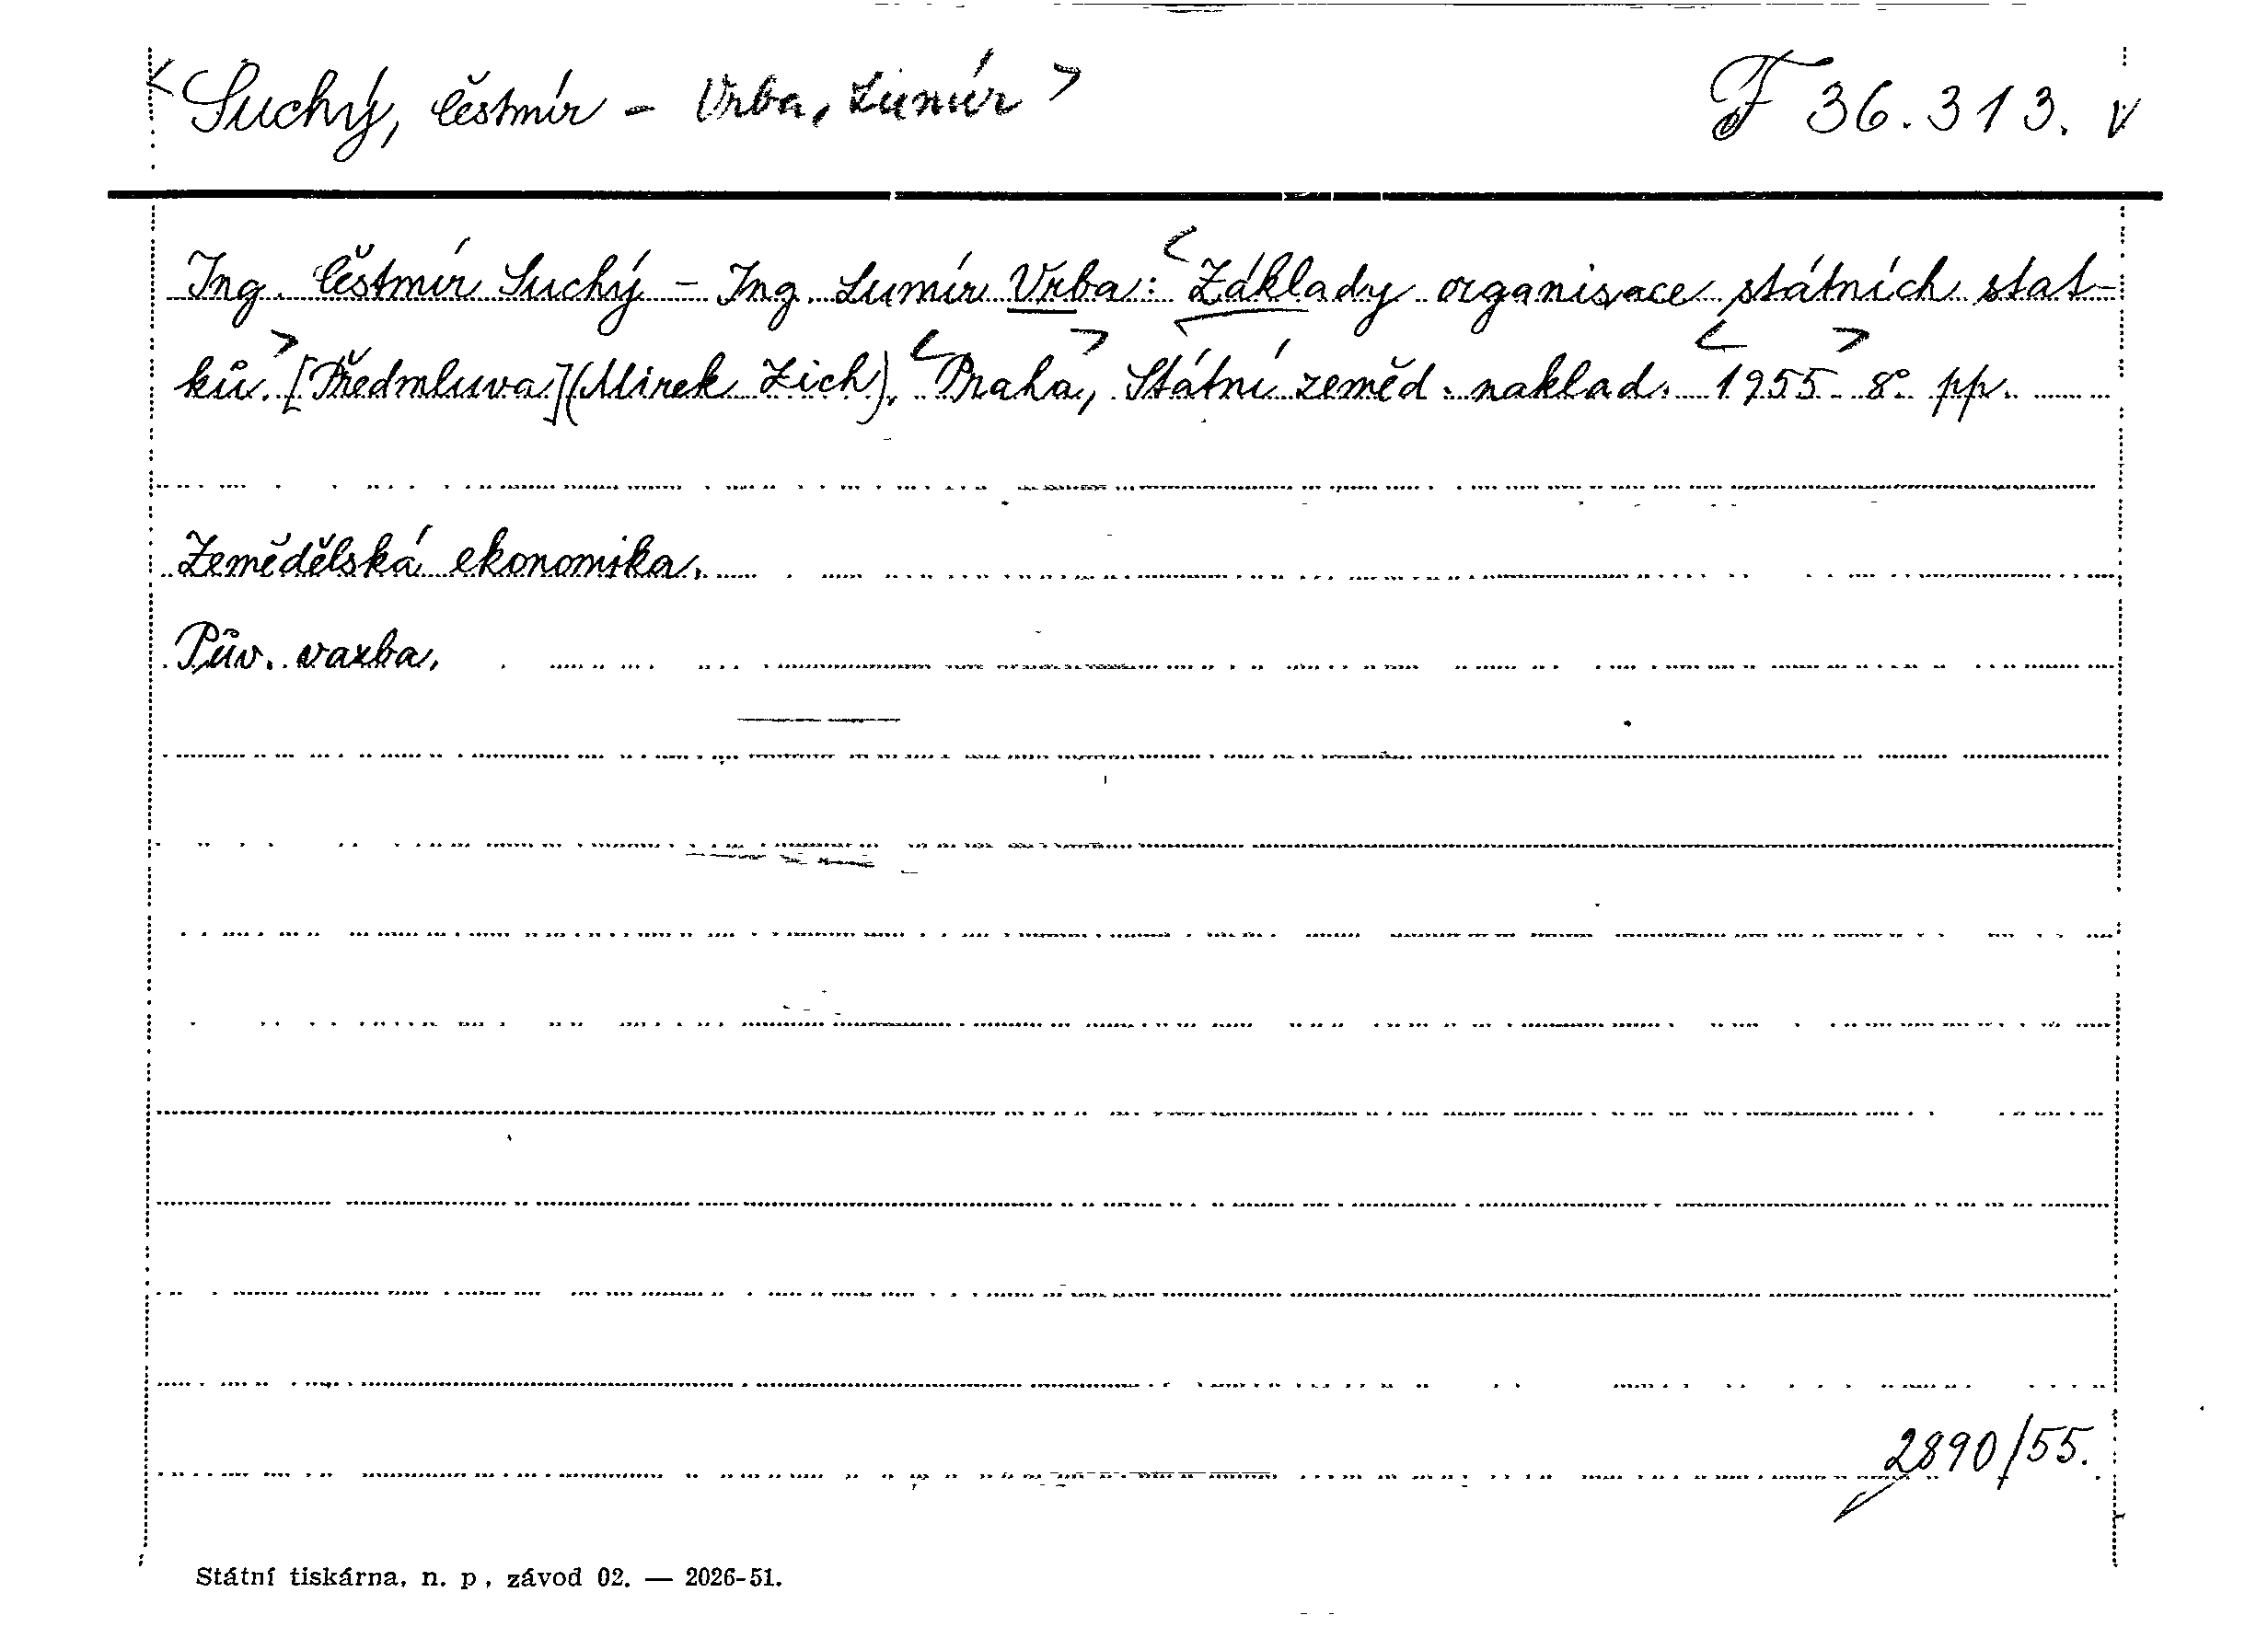 <Suchý, Čestmír - Vrba, Lumír> F 36.313. v
Ing. Čestmír Suchý - Ing. Lumír Vrba: <Základy organisace státních stat-
ků.> [Předmluva] (Mirek Zich). <Praha>, Státní zeměd. naklad. <1955> 8° pp.
Zemědělská ekonomika.
Pův. vazba.
2890/55.
Státní tiskárna, n. p., závod 02. — 2026-51.